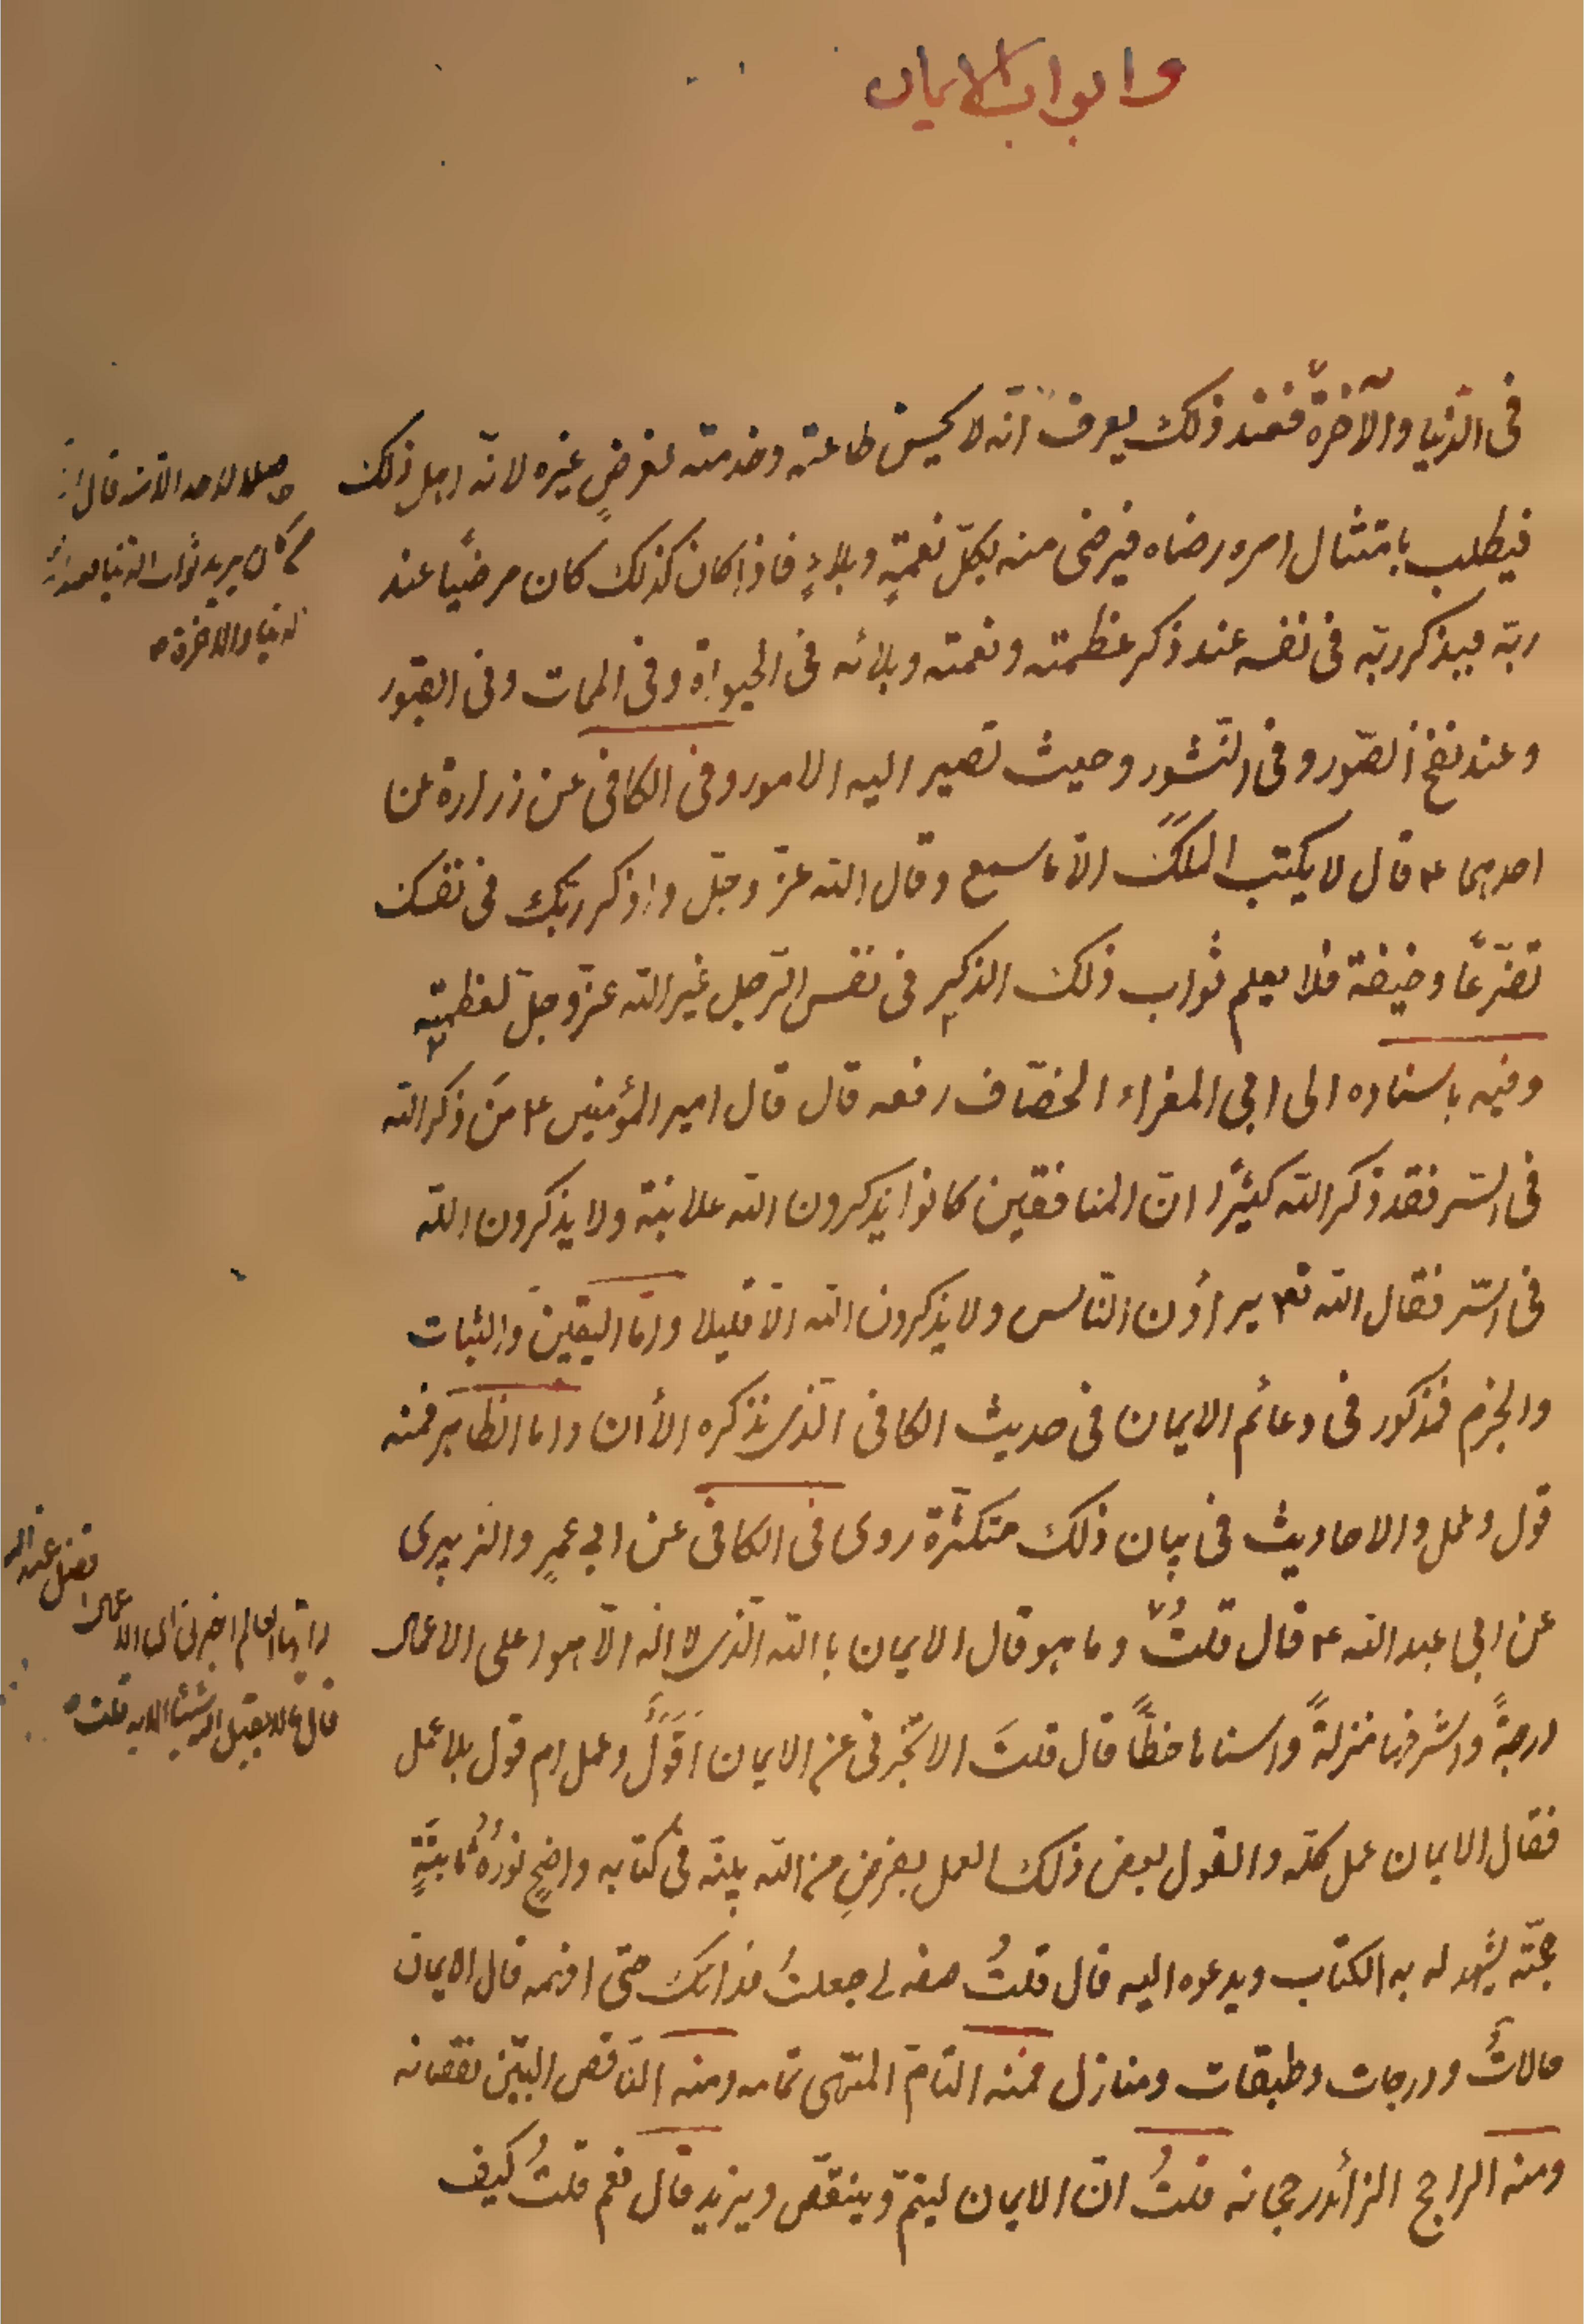 وابواب الايمان
فى الدّنيا والآخرة فعند ذلك يعرف انّه لا يحسن طاعته وخدمته لغرضٍ غيره لانّه اجل ذلك
فيطلب بامتثال امره رضاه فيرضى منه بكلّ نعمةٍ وبلاءٍ فاذا كان كذلك كان مرضيًا عند
ربّه فيذكر ربّه فى نفسه عند ذكر عظمته ونعمته وبلائه فى الحيواة وفى الممات وفى القبور
وعند نفخ الصّور وفى النّشور وحيث تصير اليه الامور وفى الكافى عن زرارة عن
احدهما ع قال لا يكتب الملك الّا ما سمع وقال الله عزّ وجلّ واذكر ربّك فى نفسك
تضرّعًا وخيفة فلا يعلم ثواب ذلك الذكر فى نفس الرّجل غير الله عزّ وجلّ لعظمته
وفيه باسناده الى ابى المغراء الخصّاف رفعه قال قال امير المؤمنين ع من ذكر الله
فى السّر فقد ذكر الله كثيرًا انّ المنافقين كانوا يذكرون الله علانية ولا يذكرون الله
فى السّر فقال الله تع يراؤن النّاس ولا يذكرون الله الّا قليلا وامّا اليقين والثبات
والجزم فمذكور فى دعائم الايمان فى حديث الكافى الّذى نذكره الأان واما الظاهر فمنه
قول وعمل والاحاديث فى بيان ذلك متكثّرة روى فى الكافى عن ابى عميرٍ والزبيرى
عن ابى عبد الله ع قال قلتُ وما هو قال الايمان باالله الّذى لا اله الّا هو اعلى الاعمال
درجةً واشرفها منزلةً واسناها حظّاً قال قلتَ الا تخبرنى عن الايمان اَقَوَلٌ وعمل ام قول بلا عمل
فقال الايمان عمل كلّه والقول بعض ذلك العمل بفرضٍ من الله بيّنه فى كتابه واضحٍ نورُهُ ثابتةٍ
حجّته يشهد له به الكتاب ويدعوه اليه قال قلتُ صفه لى جعلتُ فداك حتّى افهمه قال الايمان
حالاتٌ ودرجات وطبقات ومنازل فمنه التامّ المنتهى تمامه ومنه النّاقص البيّن نقصانه
ومنه الراجح الزائد رجحانه قلتُ انّ الايمان ليتمّ وينقص ويزيد قال نعم قلتُ كيف
من كان يريد ثواب الدّنيا فعند الله
الدنيا والاخرة
ايّها العالم اخبرنى اى الاعمال
افضل عند الله
قال ما لا يقبل الله شيئًا الا به قلت